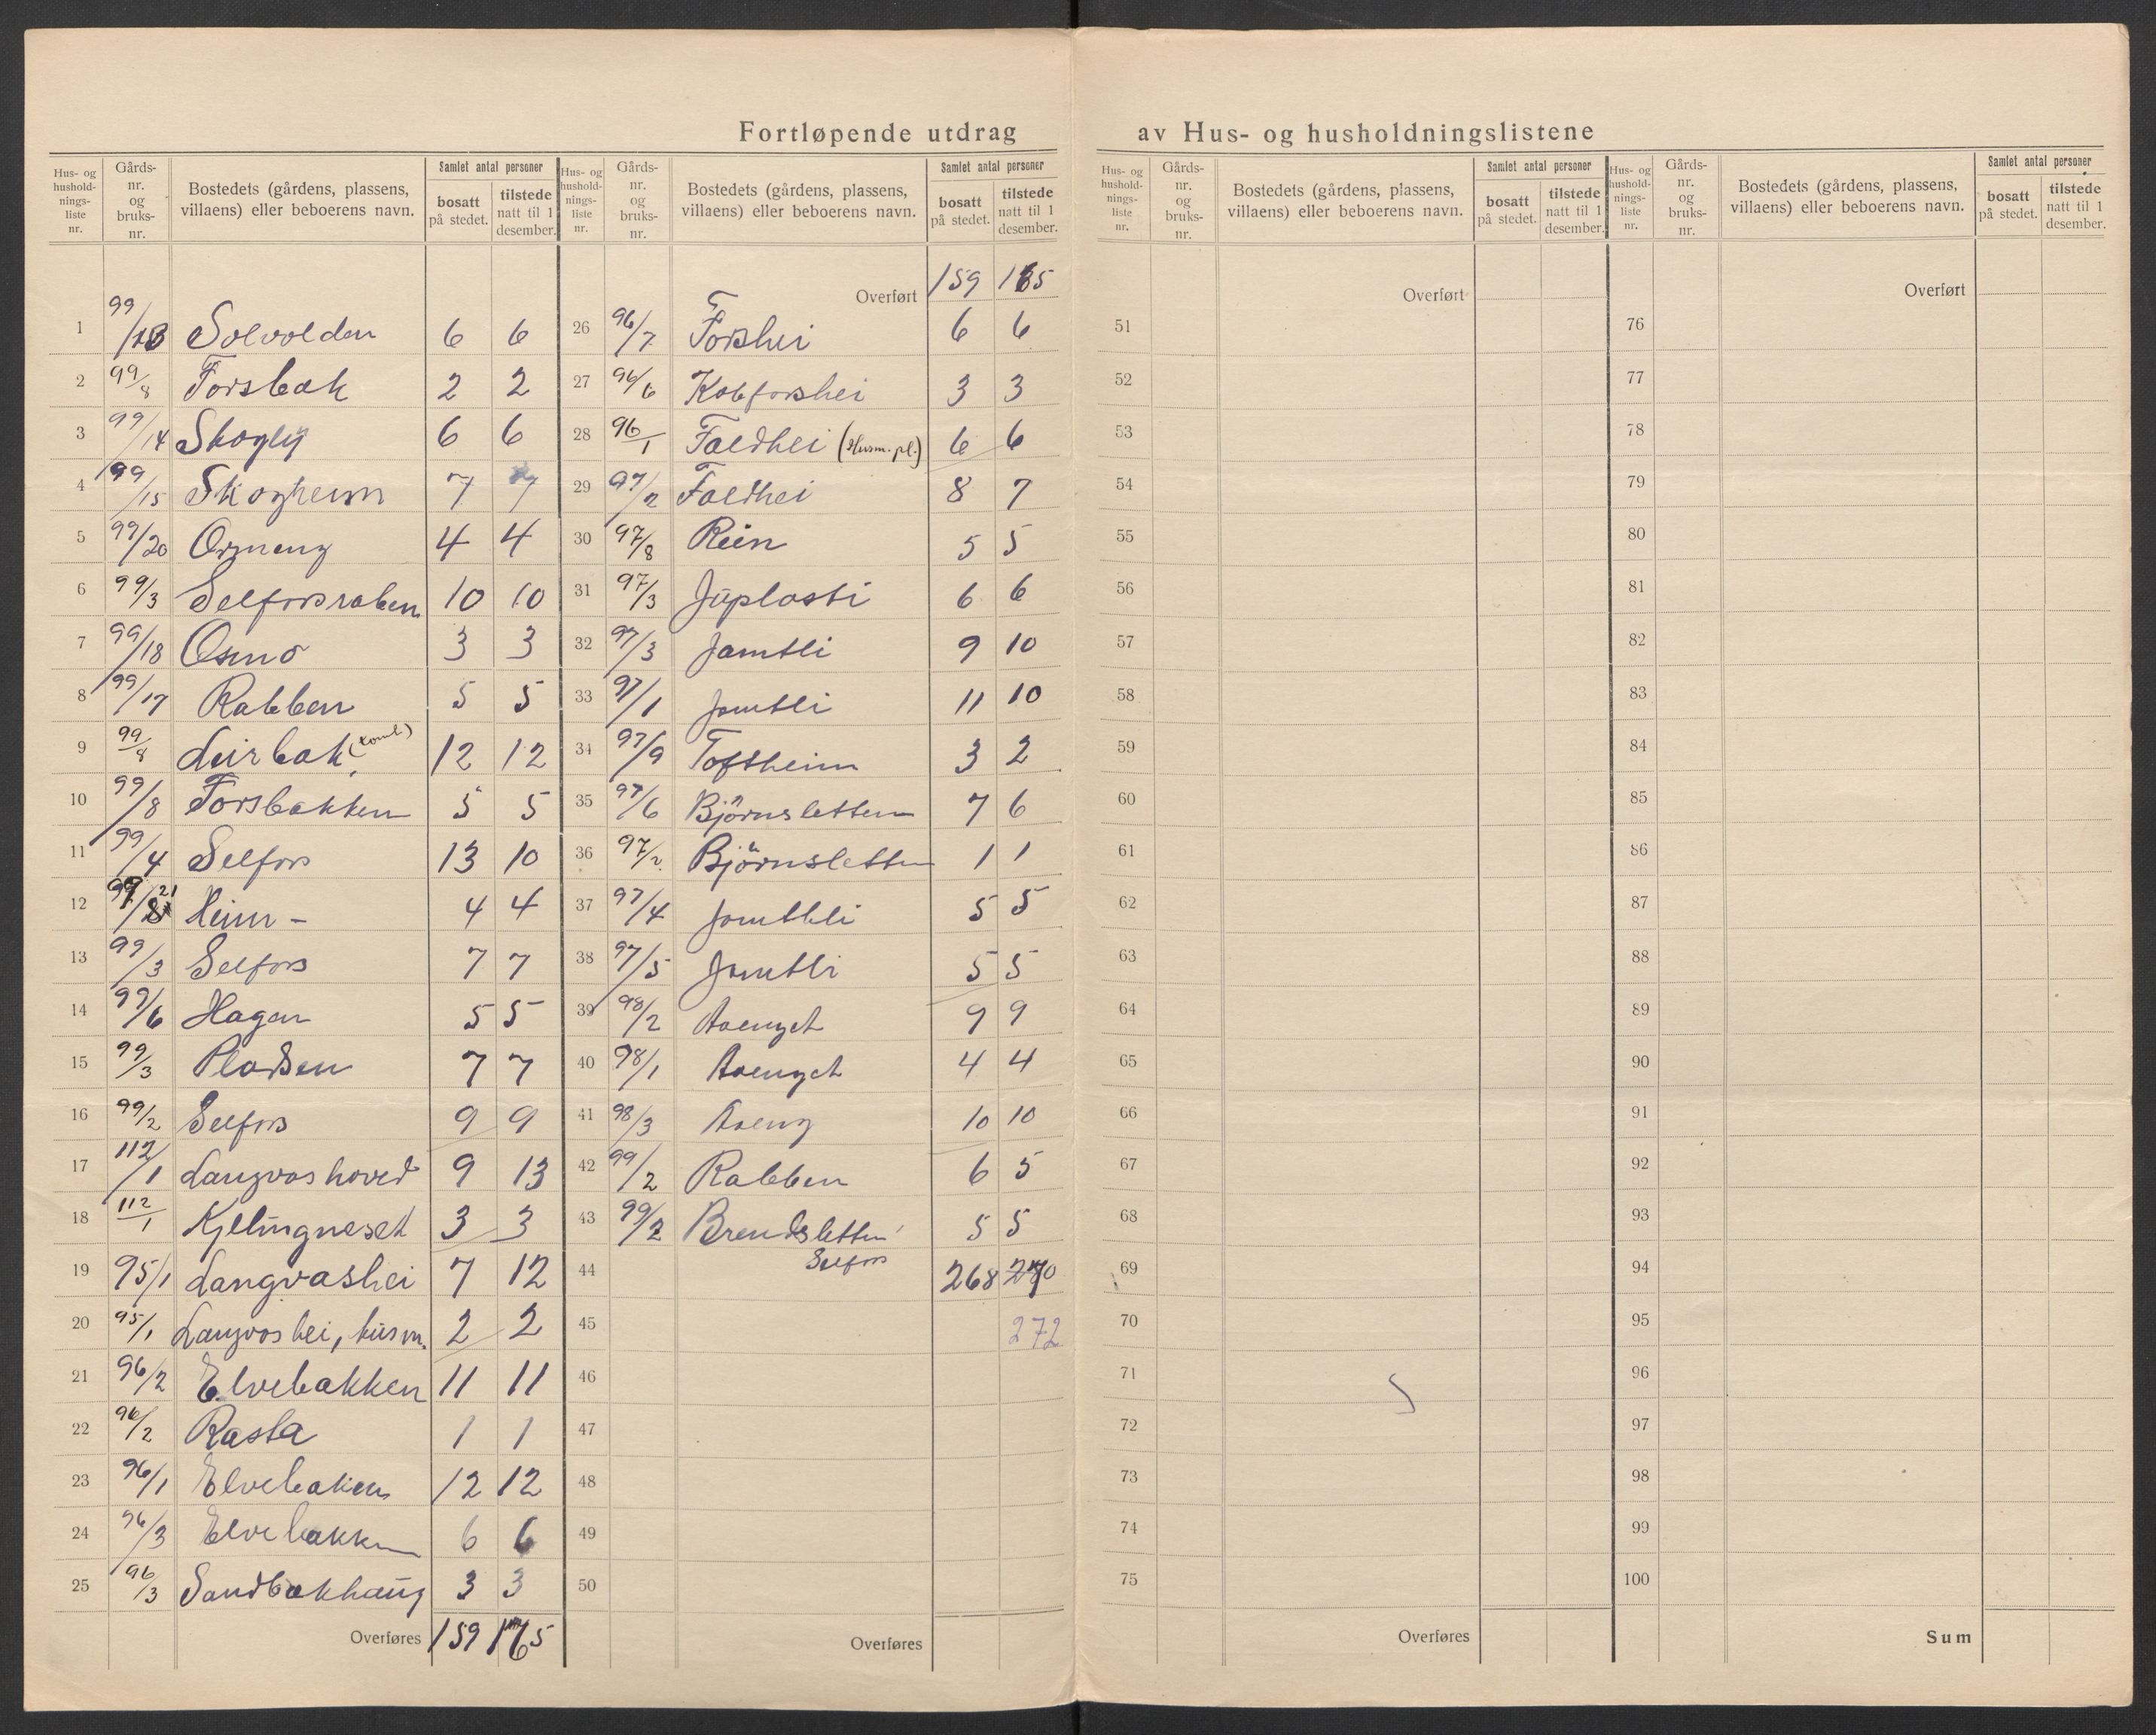 Fortløpende utdrag av Hus- og husholdningslistene
Hus- og hushold-nings-liste nr. | Gårds-nr. og bruks-nr. | Bostedets (gårdens, plassens, villaens) eller beboerens navn. | Samlet antal personer | bosatt på stedet. | tilstede natt til 1 desember.
1 99/ Solvolden 6 6
2 99/8 Forsbak 2 2
3 99/14 Skogly 6 6
4 99/15 Skogheim 7 7
5 99/20 Ormeng 4 4
6 99/3 Selforsraben 10 10
7 99/18 Osmo 3 3
8 99/17 Rabben 5 5
9 99/8 Leirbak 12 12
10 99/8 Forsbakken 5 5
11 99/4 Selfors 13 10
12 99/21 Heim - 4 4
13 99/3 Selfors 7 7
14 99/6 Hagen 5 5
15 99/3 Pladsen 7 7
16 99/2 Selfors 9 9
17 112/1 Langvashoved 9 13
18 112/1 Kjellingneset 3 3
19 95/1 Langvashei 7 12
20 95/1 Langvashei, husm. 2 2
21 96/2 Elvebakken 11 11
22 96/2 Rasta 1 1
23 96/1 Elvebakken 12 12
24 96/3 Elvebakken 6 6
25 96/3 Sandbakhaug 3 3
Overføres 159 165
Hus- og hushold-nings-liste nr. | Gårds-nr. og bruks-nr. | Bostedets (gårdens, plassens, villaens) eller beboerens navn. | Samlet antal personer | bosatt på stedet. | tilstede natt til 1 desember.
Overført 159 165
26 96/7 Forshei 6 6
27 96/6 Kobforshei 3 3
28 96/1 Faldhei (Husm.pl.) 6 6
29 97/2 Faldhei 8 7
30 97/8 Rein 5 5
31 97/3 Juplasti 6 6
32 97/3 Jamtli 9 10
33 97/1 Jamtli 11 10
34 97/9 Toftheim 3 2
35 97/6 Björnsletten 7 6
36 97/2 Björnsletten 1 1
37 97/4 Jamtli 5 5
38 97/5 Jamtli 5 5
39 98/2 Avenget 9 9
40 98/1 Avenget 4 4
41 98/3 Aveng 10 10
42 99/2 Rabben 6 5
43 99/2 Brendsletten 5 5
Selfors
44 268 270
45 272
46
47
48
49
50
Overføres
Hus- og hushold-nings-liste nr. | Gårds-nr. og bruks-nr. | Bostedets (gårdens, plassens, villaens) eller beboerens navn. | Samlet antal personer | bosatt på stedet. | tilstede natt til 1 desember.
Overført
51
52
53
54
55
56
57
58
59
60
61
62
63
64
65
66
67
68
69
70
71
72
73
74
75
Overføres
Hus- og hushold-nings-liste nr. | Gårds-nr. og bruks-nr. | Bostedets (gårdens, plassens, villaens) eller beboerens navn. | Samlet antal personer | bosatt på stedet. | tilstede natt til 1 desember.
Overført
76
77
78
79
80
81
82
83
84
85
86
87
88
89
90
91
92
93
94
95
96
97
98
99
100
Sum